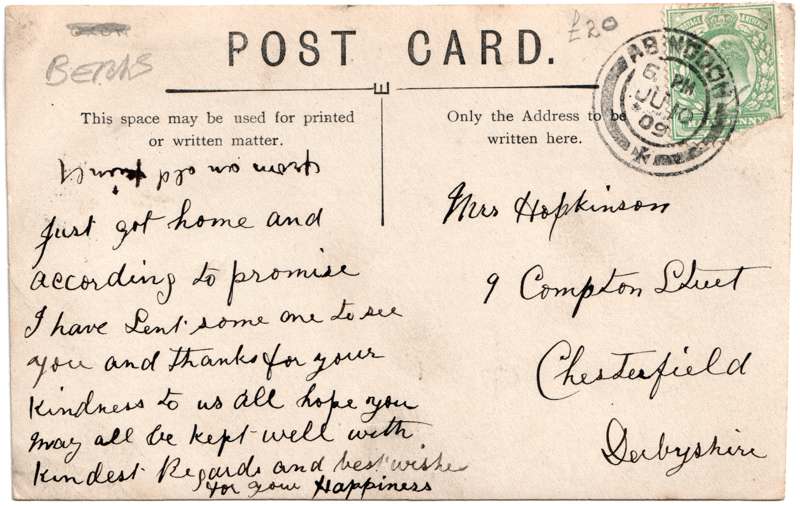 BERKS
£20
POST CARD.
This space may be used for printed
or written matter.
Only the Address to be
written here.
ABINGDON
6 PM
JU 10
09
POSTAGE
PENNY
from an old
Just got home and
according to promise
I have Sent some one to see
you and thanks for your
Kindness to us all hope you
may all be kept well with
Kindest Regards and best wishe
for your Happiness
Mrs Hopkinson
9 Compton Street
Chesterfield
Derbyshire